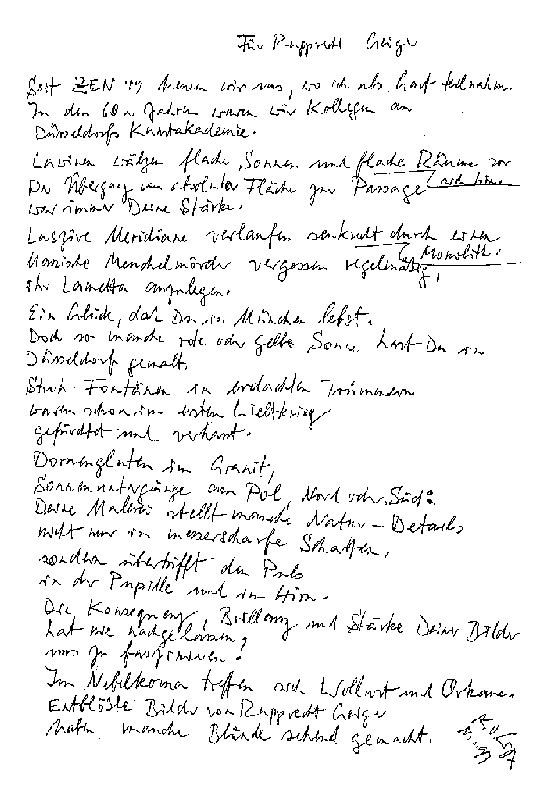 Für Rupprecht Geiger
Seit ZEN 49 kennen wir uns, wo ich als Gast teilnahm.
In den 60er Jahren waren wir Kollegen an
Düsseldorfs Kunstakademie.
Lawinen wälzen flache Sonnen und flache Räume vor
Der Übergang von Fläche zur Passage
war immer Deine Stärke.
Laszive Meridiane verlaufen senkrecht durch einen
Monolith.
Klassische Meuchelmörder vergessen regelmäßig,
ihr Lametta anzulegen.
Ein Glück, daß Du in München lebst.
Doch so manche rote oder gelbe Sonne hast Du in
Düsseldorf gemalt.
Fontänen in erdachten
waren schon im ersten Weltkrieg
gefürchtet und verhasst.
Dornengluten im Granit,
Sonnenuntergänge am Pol, Nord oder Süd:
Deine Malerei stellt manche Natur-Details
nicht nur in messerscharfe Schatten,
sondern übertrifft den Puls
in der Pupille und im Hirn.
Die Konsequenz, Brillanz und Stärke Deiner Bilder
hat nie nachgelassen,
uns zu faszinieren!
Im Nebelkoma treffen sich Wollust und Orkane.
Entblößte Bilder von Rupprecht Geiger
haben manche Blinde sehend gemacht.